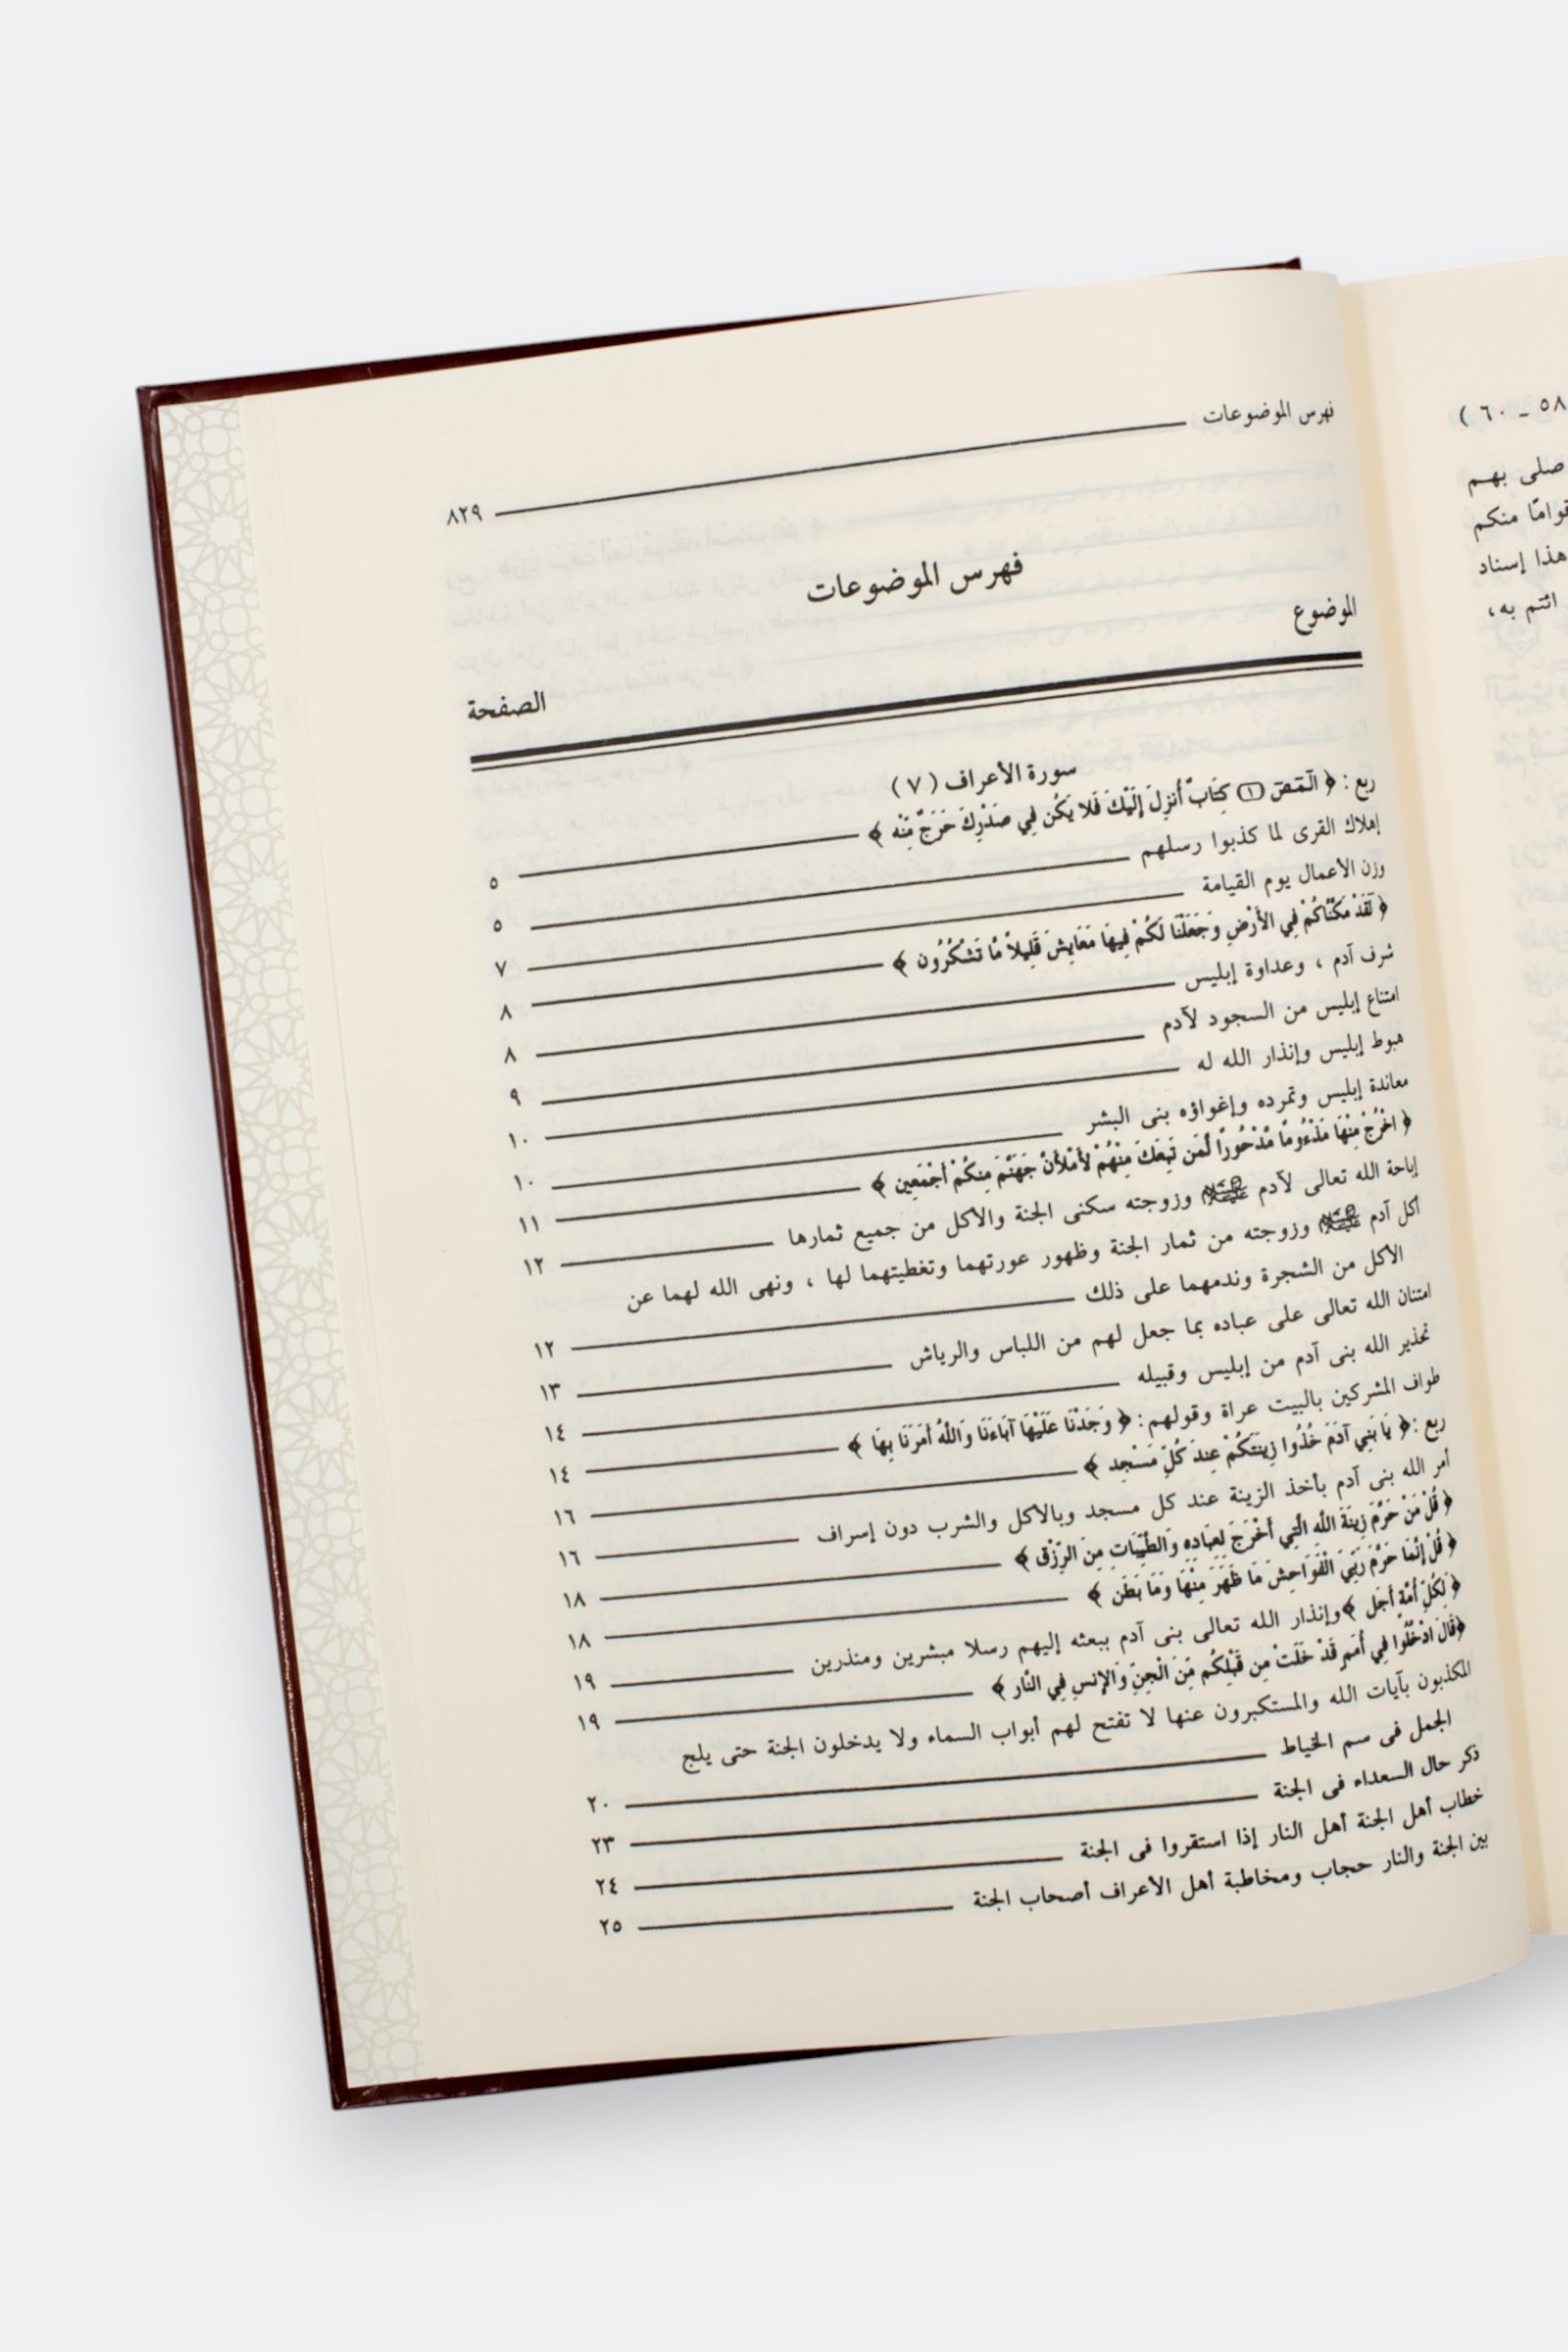 ٥٨ ـ ٦٠ )
صلى بهم
قوامًا منكم
هذا إسناد
ائتم به،
فهرس الموضوعات ٨٢٩
فهرس الموضوعات
الموضوع الصفحة
سورة الأعراف ( ٧ )
ربع : ﴿ الٓمٓصٓ ① كِتَابٌ أُنزِلَ إِلَيْكَ فَلا يَكُن فِي صَدْرِكَ حَرَجٌ مِّنْه ﴾ ٥
إهلاك القرى لما كذبوا رسلهم ٥
وزن الأعمال يوم القيامة ٧
﴿ لَقَدْ مَكَّنَّاكُمْ فِي الأَرْضِ وَجَعَلْنَا لَكُمْ فِيهَا مَعَايِشَ قَلِيلاً مَّا تَشْكُرُون ﴾ ٨
شرف آدم ، وعداوة إبليس ٨
امتناع إبليس من السجود لآدم ٩
هبوط إبليس وإنذار الله له ١٠
معاندة إبليس وتمرده وإغواؤه بنى البشر ١٠
﴿ اخْرُجْ مِنْهَا مَذْءُومًا مَّدْحُورًا لَّمَن تَبِعَكَ مِنْهُمْ لأَمْلأَنَّ جَهَنَّمَ مِنكُمْ أَجْمَعِين ﴾ ١١
إباحة الله تعالى لآدم وزوجته سكنى الجنة والأكل من جميع ثمارها ١٢
أكل آدم وزوجته من ثمار الجنة وظهور عورتهما وتغطيتهما لها ، ونهى الله لهما عن
الأكل من الشجرة وندمهما على ذلك ١٢
امتنان الله تعالى على عباده بما جعل لهم من اللباس والرياش ١٣
تحذير الله بنى آدم من إبليس وقبيله ١٤
طواف المشركين بالبيت عراة وقولهم : ﴿ وَجَدْنَا عَلَيْهَا آبَاءَنَا وَاللَّهُ أَمَرَنَا بِهَا ﴾ ١٤
ربع : ﴿ يَا بَنِي آدَمَ خُذُوا زِينَتَكُمْ عِندَ كُلِّ مَسْجِد ﴾ ١٦
أمر الله بنى آدم بأخذ الزينة عند كل مسجد وبالأكل والشرب دون إسراف ١٦
﴿ قُلْ مَنْ حَرَّمَ زِينَةَ اللَّهِ الَّتِي أَخْرَجَ لِعِبَادِهِ وَالطَّيِّبَاتِ مِنَ الرِّزْق ﴾ ١٨
﴿ قُلْ إِنَّمَا حَرَّمَ رَبِّيَ الْفَوَاحِشَ مَا ظَهَرَ مِنْهَا وَمَا بَطَن ﴾ ١٨
﴿ لِكُلِّ أُمَّةٍ أَجَل ﴾ وإنذار الله تعالى بنى آدم ببعثه إليهم رسلا مبشرين ومنذرين ١٩
﴿ قَالَ ادْخُلُوا فِي أُمَمٍ قَدْ خَلَتْ مِن قَبْلِكُم مِّنَ الْجِنِّ وَالإِنسِ فِي النَّار ﴾ ١٩
المكذبون بآيات الله والمستكبرون عنها لا تفتح لهم أبواب السماء ولا يدخلون الجنة حتى يلج
الجمل فى سم الخياط ٢٠
ذكر حال السعداء فى الجنة ٢٣
خطاب أهل الجنة أهل النار إذا استقروا فى الجنة ٢٤
بين الجنة والنار حجاب ومخاطبة أهل الأعراف أصحاب الجنة ٢٥